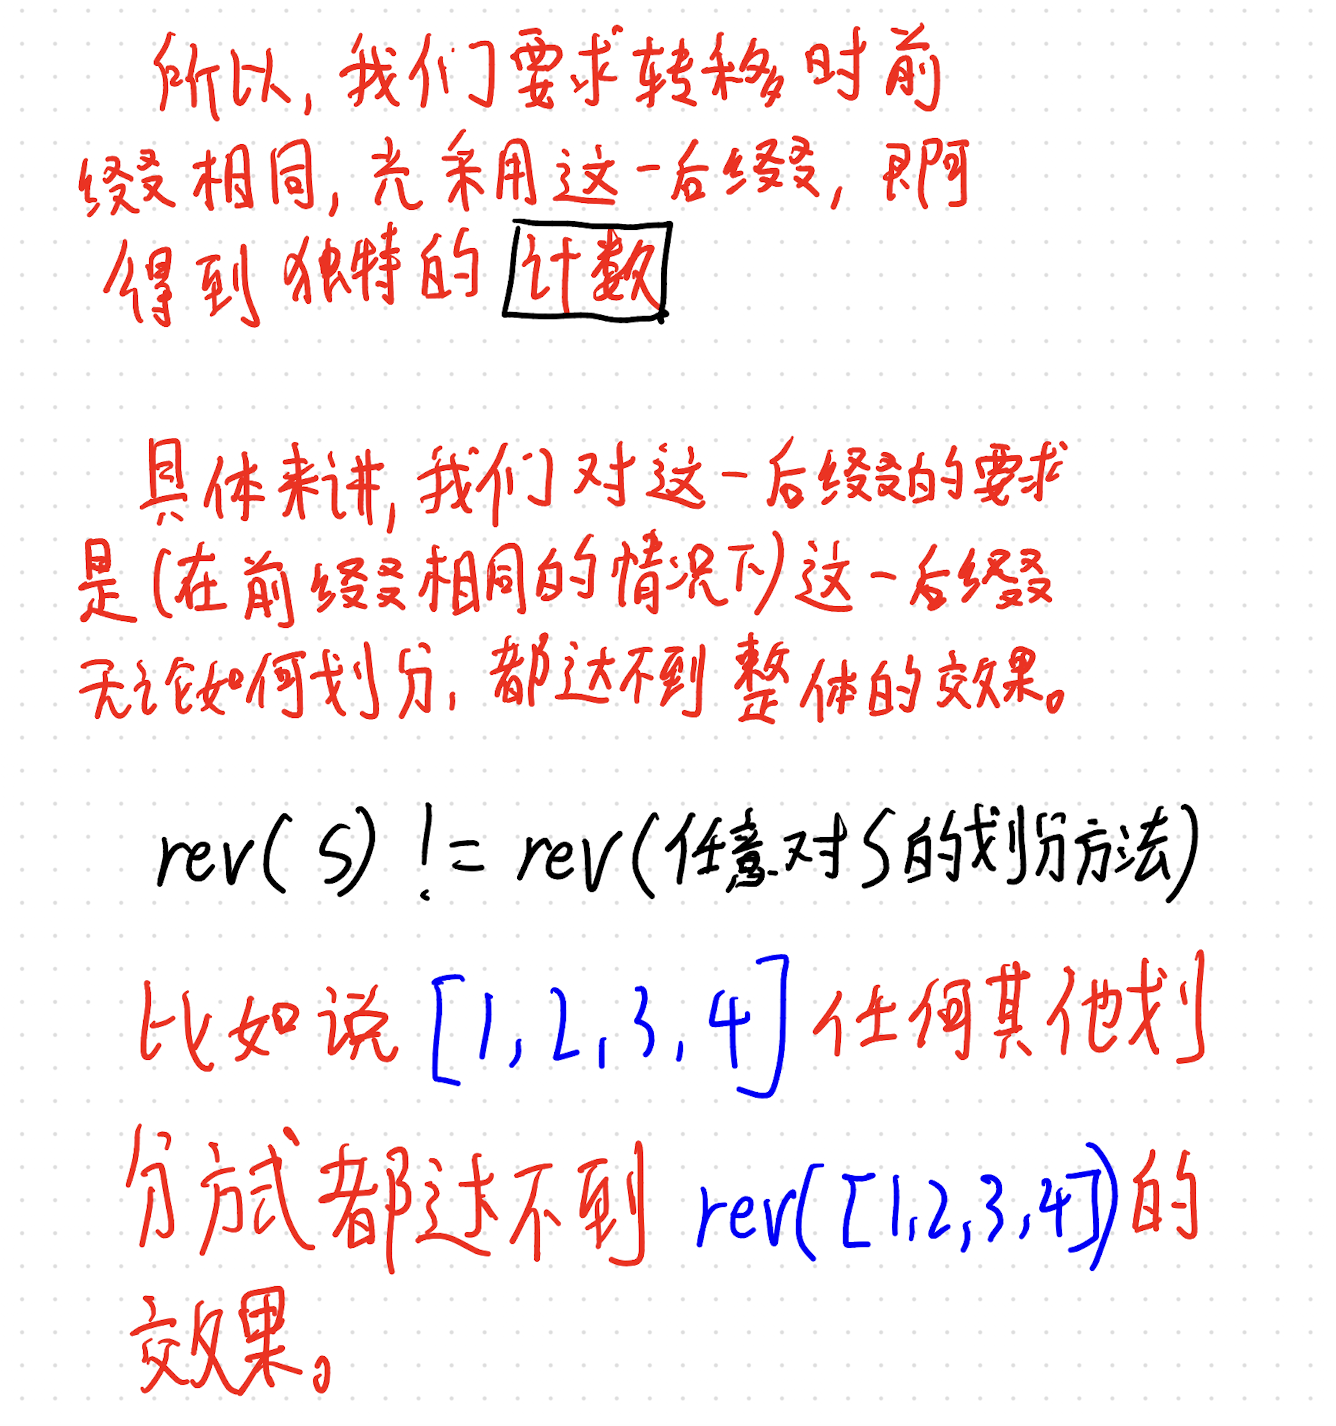 所以, 我们要求转移时前
缀相同, 光采用这一后缀, 即可
得到独特的 计数
具体来讲, 我们对这一后缀的要求
是(在前缀相同的情况下)这一后缀
无论如何划分, 都达不到整体的效果。
rev( S ) != rev(任意对S的划分方法)
比如说 [1,2,3,4] 任何其他划
分方式都达不到 rev([1,2,3,4])的
效果。